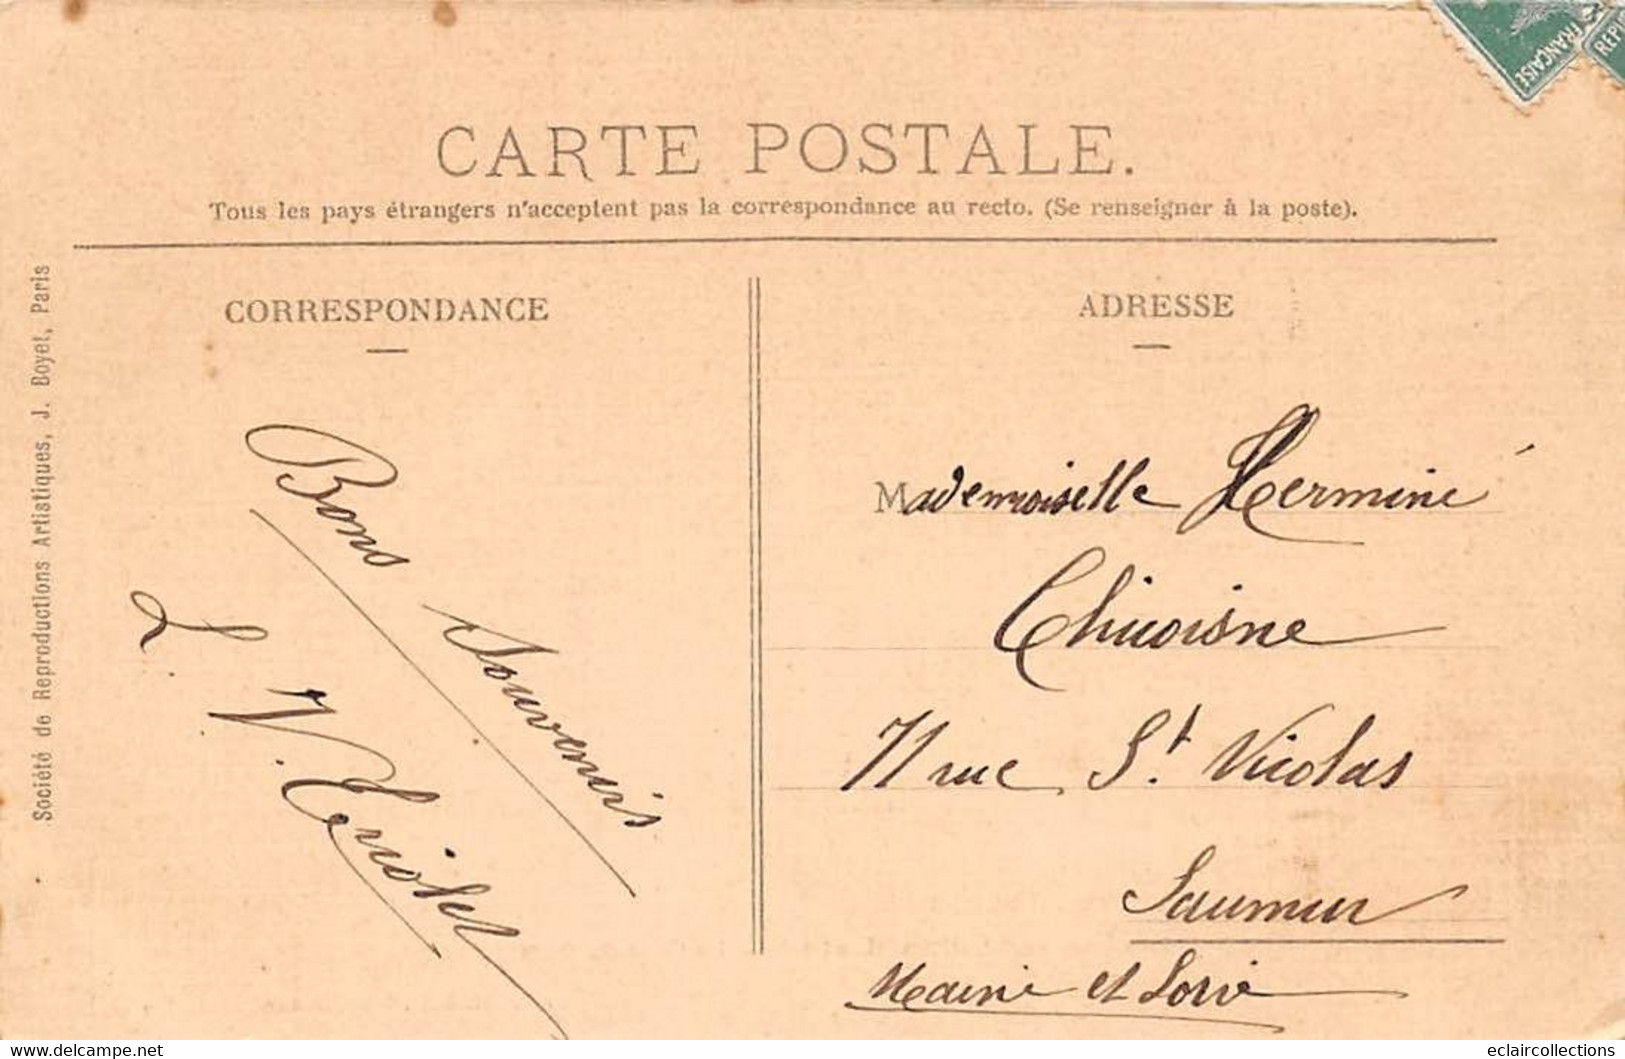 FRANÇAISE
REP
CARTE POSTALE.
Tous les pays étrangers n'acceptent pas la correspondance au recto. (Se renseigner à la poste).
CORRESPONDANCE
Bons Souvenirs
L. V.
ADRESSE
Mademoiselle Hermine
71 rue St. Nicolas
Saumur
Maine et Loire
Société de Reproductions Artistiques, J. Boyet, Paris
www.delcampe.net
eclaircollections